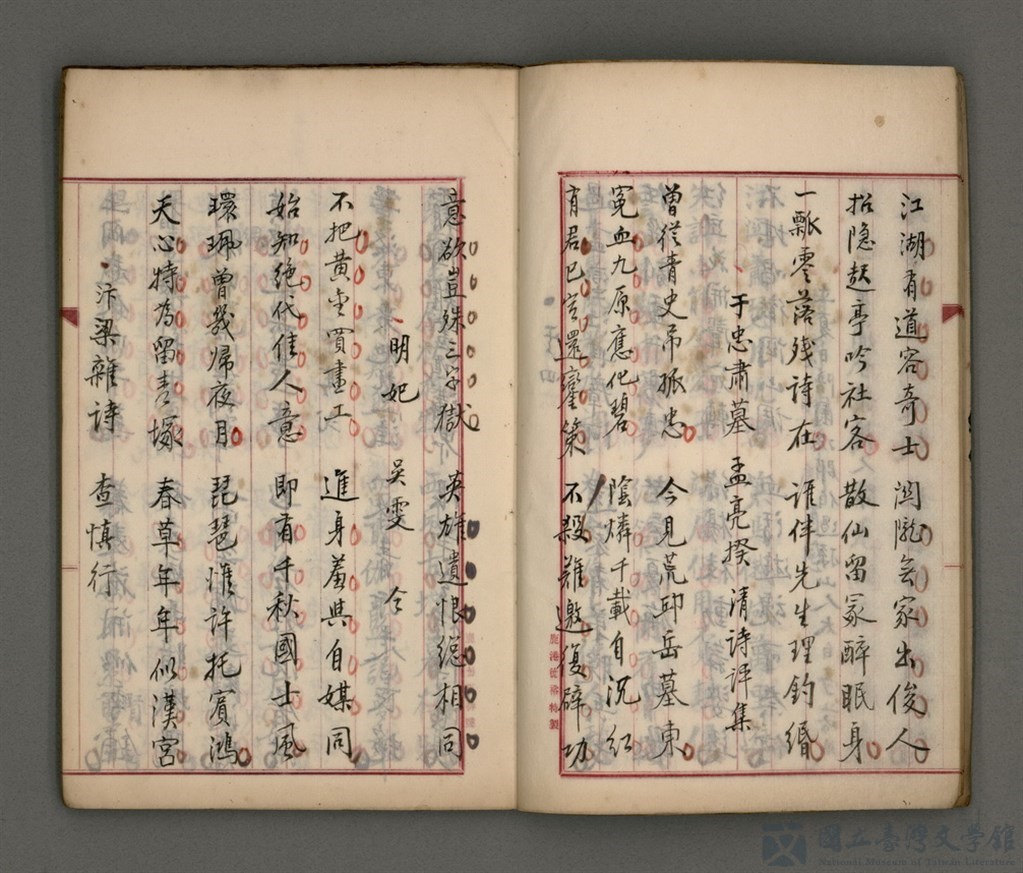 江湖有道容奇士 闗隴無家出俊人
招隐題亭吟社客 散仙留冢醉眠身
一瓢零落残诗在 誰伴先生理釣緡
于忠肅墓 孟亮揆 清诗评集
曾從青史弔孤忠 今見荒邱岳墓東
冤血九原應化碧 陰燐千載自沉红
有君已定還鑾策 不殺難邀復辟功
鹿港信常特製
意欲豈殊三字獄 英雄遺恨總相同
明妃 吳雯 仝
不把黄金買畫工 進身羞與自媒同
始知绝代佳人意 即有千秋國士風
環珮曾歸夜月 琵琶惟许托賓鴻
天心特为留青塚 春草年年似漢宮
汴梁雜诗 查慎行
國立臺灣文學館
National Museum of Taiwan Literature